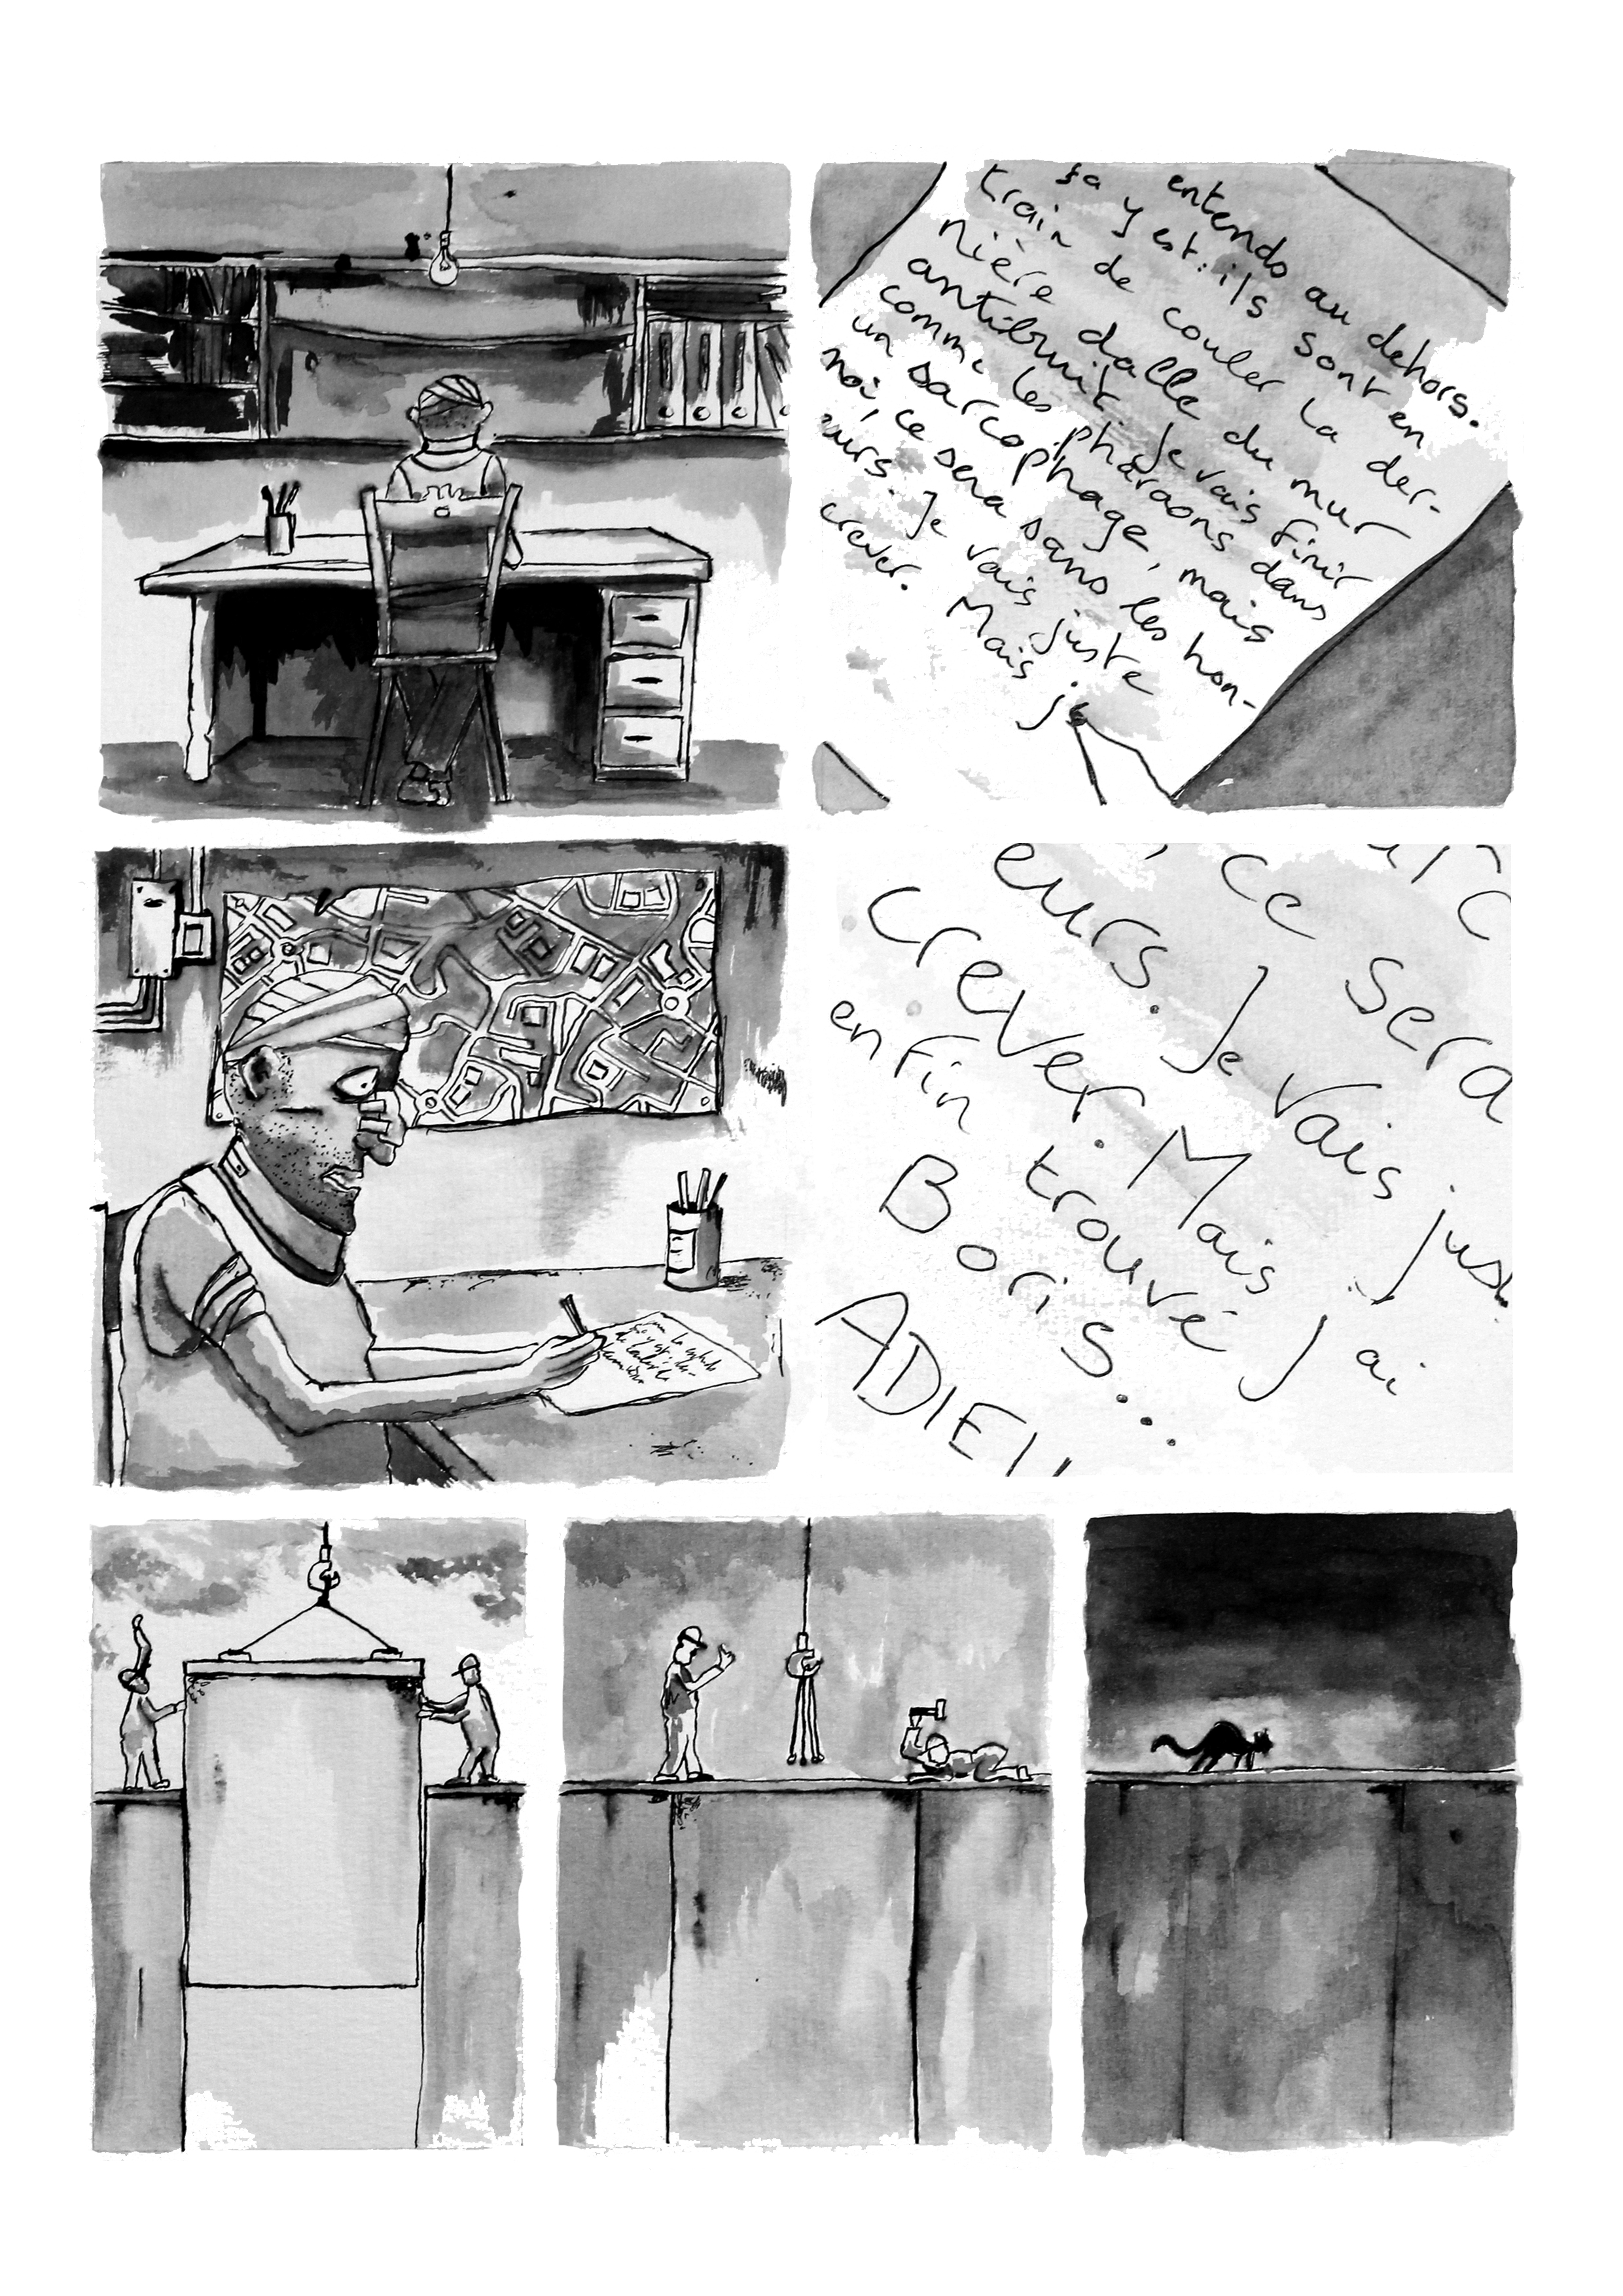 entends au dehors.
ça y est : ils sont en
train de couler la der-
nière dalle du mur
antibruit. Je vais finir
comme les pharaons dans
un sarcophage, mais
moi, ce sera sans les hon-
eurs. Je vais juste
crever. Mais j
, ce sera
eurs. Je vais jus
crever. Mais j'ai
enfin trouvé
Boris...
ADIEU